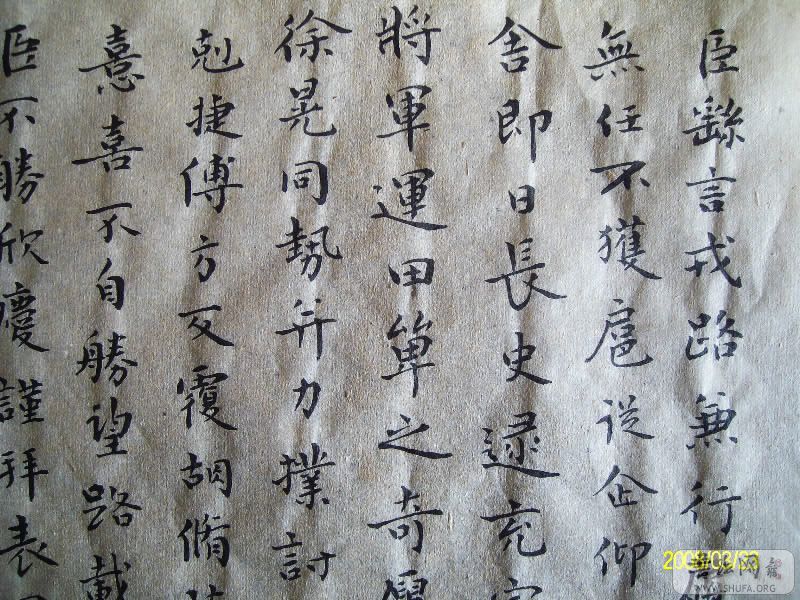 臣繇言戎路兼行
無任不獲扈從企仰
舍即日長史逮充
將軍運田單之奇厲
徐晃同勢并力撲討
剋捷傅方反覆胡脩
憙喜不自勝望路載
臣不勝欣慶謹拜表
WWW.SHUFA.ORG